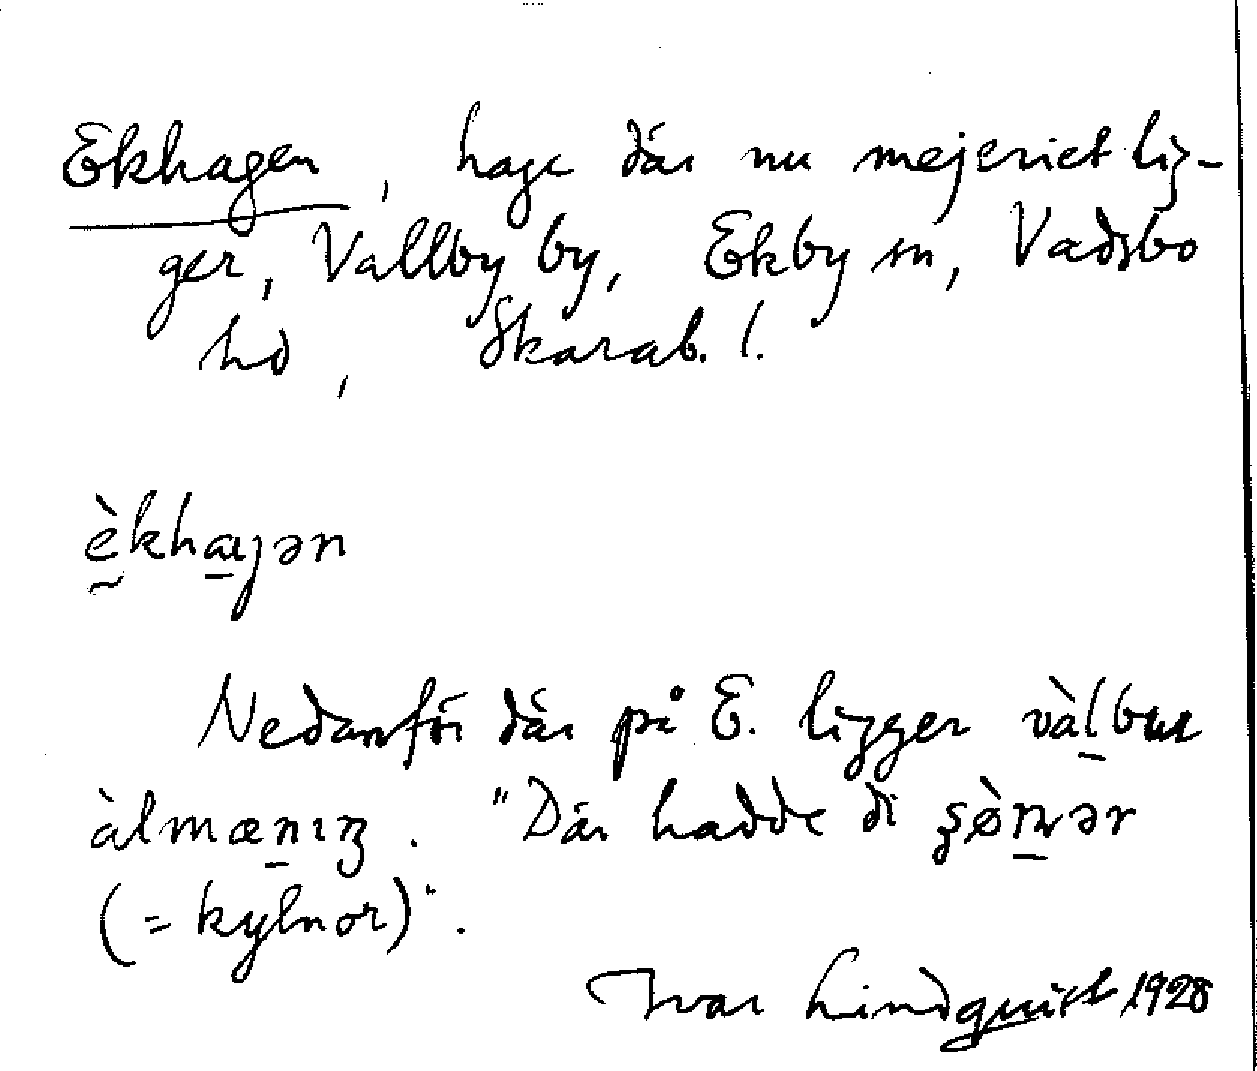 Ekhagen, hage där nu mejeriet lig-
ger, Vallby by, Ekby sn, Vadsbo
hd, Skarab. l.
èkhaɡən
Nedanför där på E. ligger vàlbu
àlmæniŋ. "Där hadde di ʂø̀nər
(= kylnor)".
Ivar Lindquist 1928